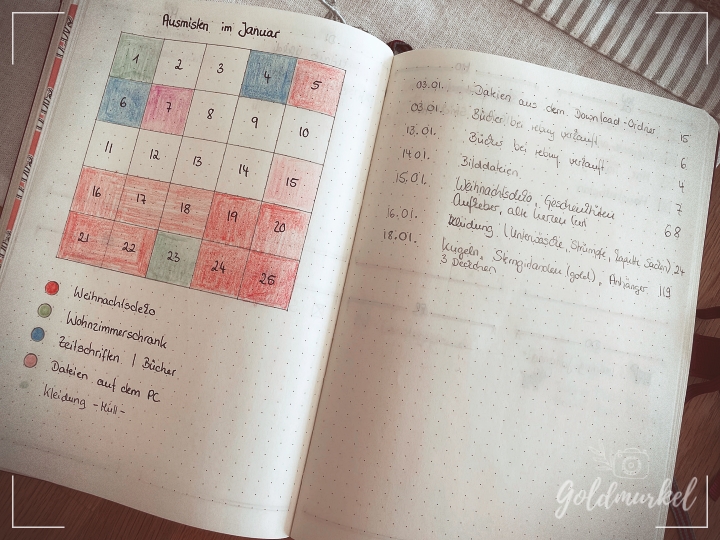 Ausmisten im Januar
1 2 3 4 5
6 7 8 9 10
11 12 13 14 15
16 17 18 19 20
21 22 23 24 25
Weihnachtsdeko
Wohnzimmerschrank
Zeitschriften / Bücher
Dateien auf dem PC
Kleidung -Müll-
03.01. Dateien aus dem Download-Ordner 15
03.01. Bücher bei rebuy verkauft 6
13.01. Bücher bei rebuy verkauft 4
14.01. Bilddateien 7
15.01. Weihnachtsdeko, Geschenktüten
Aufkleber, alte Kerzen 68
16.01. Kleidung (Unterwäsche, Strümpfe, kaputte Sachen) 24
18.01. Kugeln, Sterngirlanden (gold), Anhänger 119
3 Deckchen
Goldmurkel